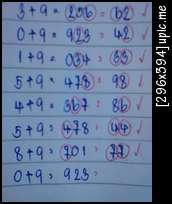 3+9 = 256 = 62 ✓
0+9 = 923 = 42 ✓
1+9 = 034 = 33 ✓
5+9 = 473 = 98 ✓
4+9 = 367 = 86 ✓
5+9 = 478 = 44 ✓
8+9 = 701 = 77 ✓
0+9 = 923 =
[296x394] uplc.me